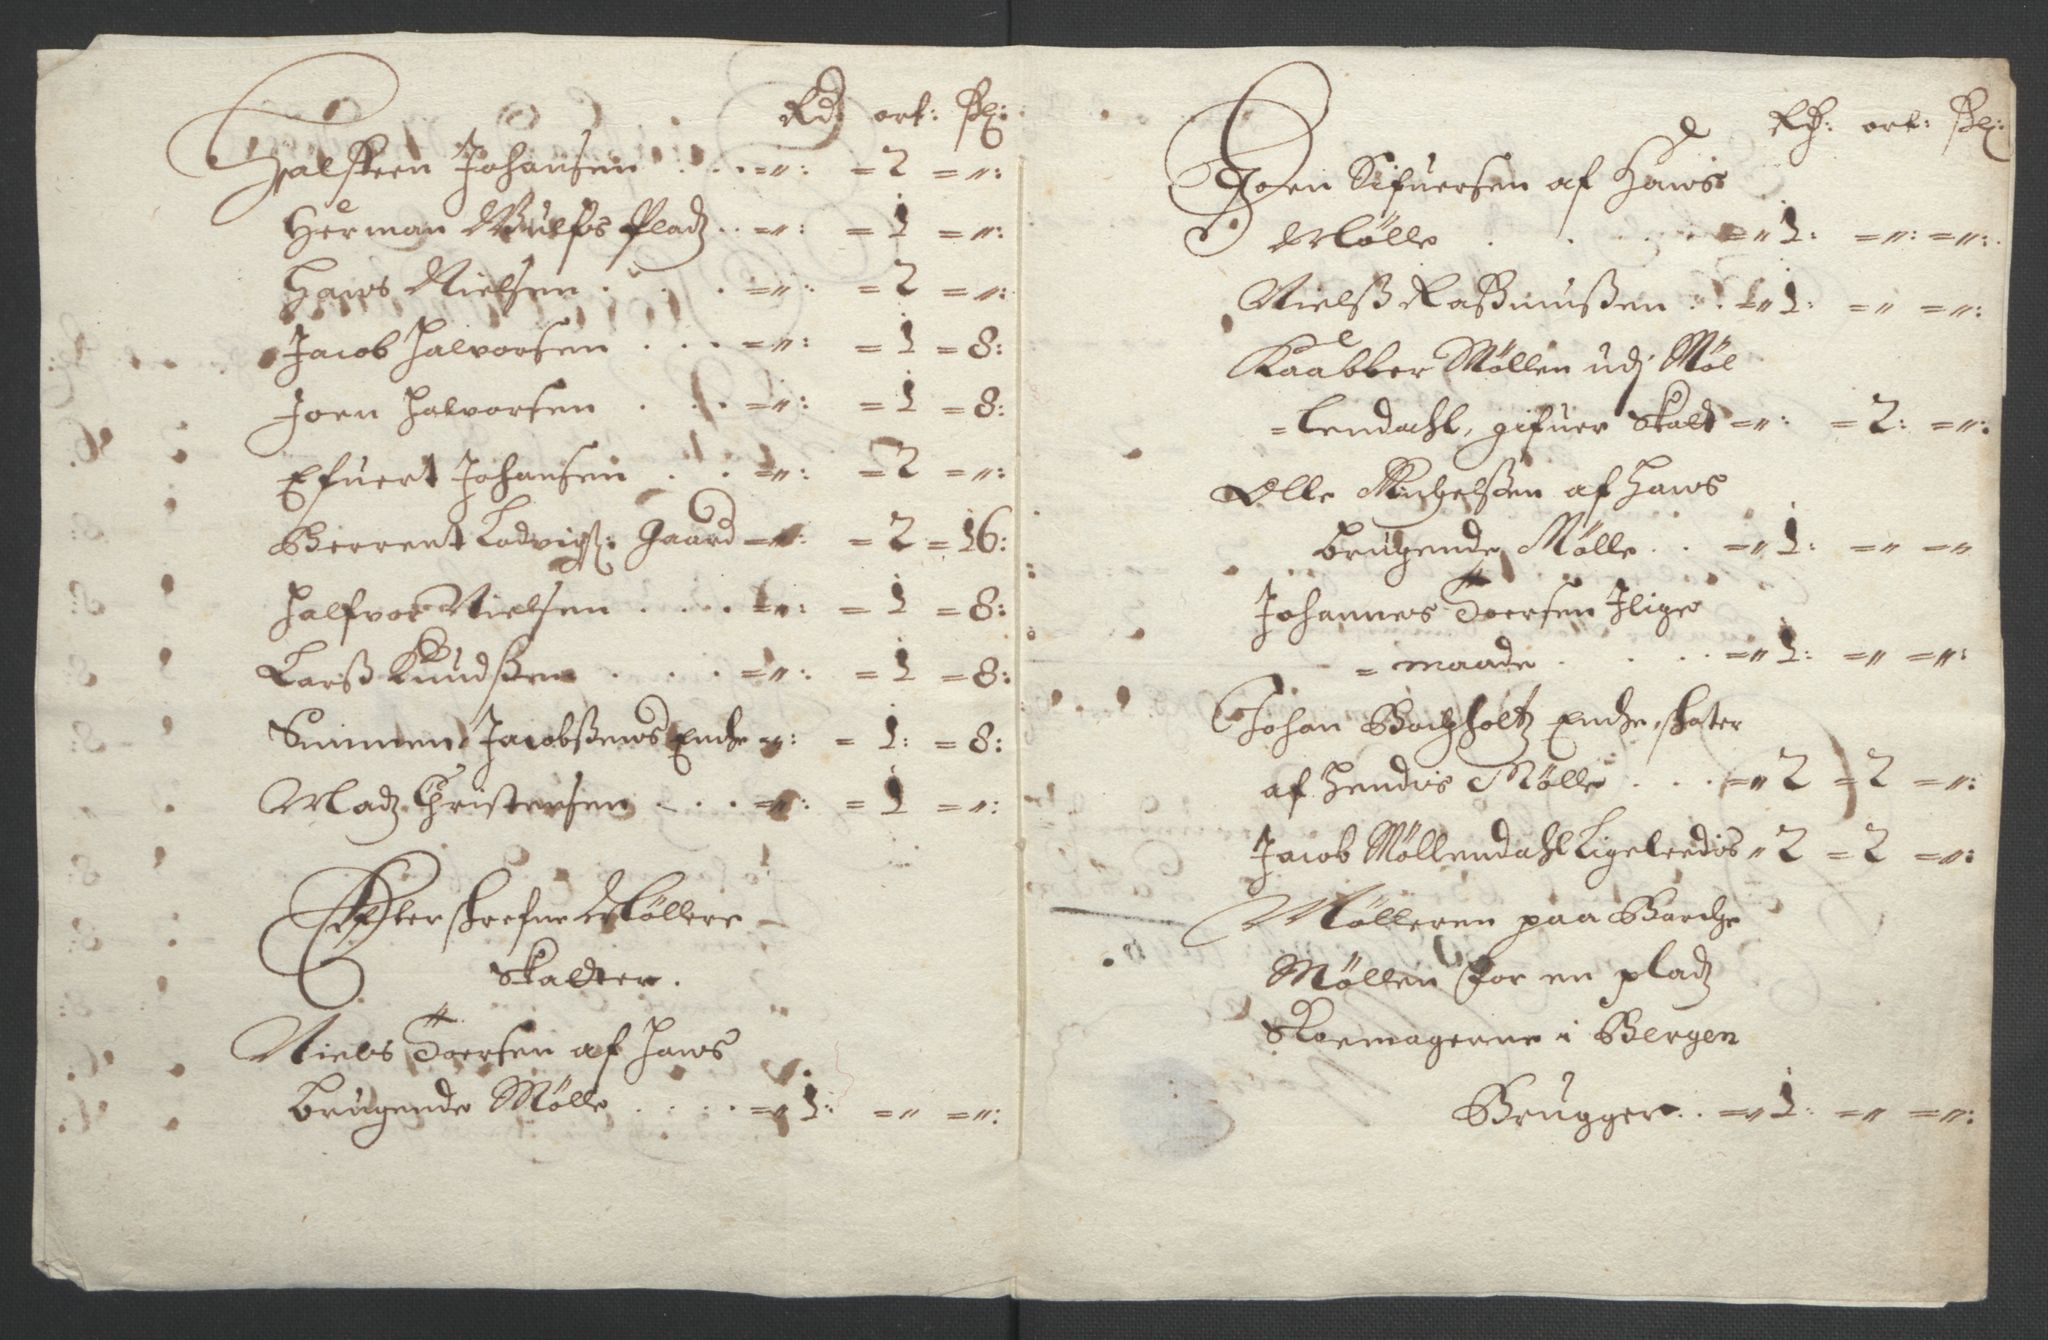 Rdr ort: sk:
Halsteen Johansen . . . =〃: =2 =〃:
Herman Wulfs Pladz . . =〃: =1 =〃:
Hans Nielsen . . . =〃: =2 =〃:
Jacob Halvorsen . . . =〃: =1 =8:
Joen Halvorsen . . . =〃: =1 =8:
Efuert Johansen . . . =〃: =2 =〃:
Berrent Lodvigs: Gaard =〃: =2 =16:
Halfvor Nielsen . . . . =〃: =1 =8:
Larss Knudssen . . . =〃: =1 =8:
Simmen Jacobssens Encke =〃: =1: =8:
Madz Christensen . . . =〃: =1 =〃:
Efterskrefne Möllere
Skatter.
Niels Toersen af hans
brugende Mölle . . . . =〃1: =〃 =〃:
Rdr: ort: sk:
Joen Sifuersen af hans
Mölle . . . . =〃1: =〃: =〃:
Nielss Rassmussen . . =〃1: =〃 =〃:
Kaabber Möllen udj Möl
=lendahl, gifuer Skatt =〃: =2: =〃:
Olle Michelssen af hans
brugende Mölle . . =〃1: =〃 =〃
Johannes Toersen Jlige
=maade . . . . =〃1: =〃 =〃:
Johan Bochholtz Encke, skater
af hendis Mölle . . . =〃2 =2 =〃:
Jacob Möllendahl Ligeleedis 〃2 =2 =〃:
Mölleren paa Garche
Möllen for en pladz
Skoemagerne i Bergen
Brugger . . =〃1: =〃 =〃: